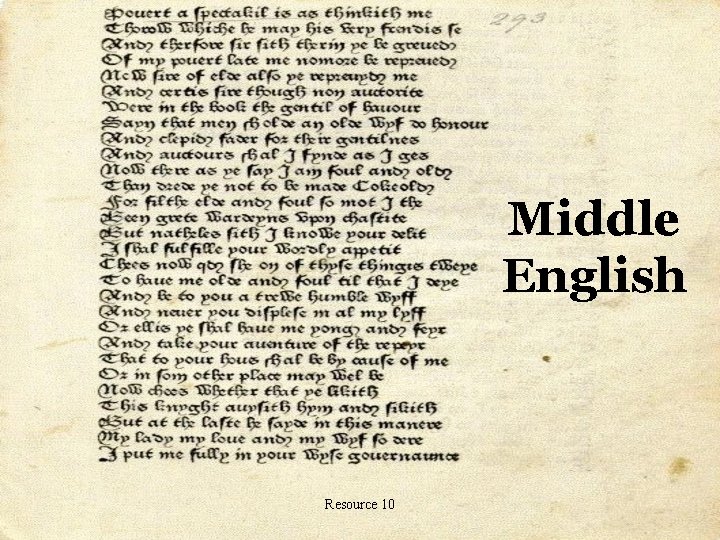 293
Povert a spectakil is as thinkith me
Thorow whiche he may his very frendis se
And therfore sir sith therin ye be greued
Of my pouert late me nomore be repreued
Now sire of elde also ye repreuyd me
And certis sire though non auctorite
Were in the book the gentil of hauour
Sayn that men sholde an olde wyf do honour
And clepid fader for their gentilnes
And auctours shal I fynde as I ges
Now there as ye say I am foul and old
Than drede ye not to be made Cokeold
For filthe elde and foul so mot I the
Been grete wardeyns vpon chastite
But natheles sith I knowe your delit
I shal fulfille your wordly appetit
Chees now qd she on of thyse thingis tweye
To haue me olde and foul til that I deye
And be to you a trewe humble wyff
And neuer you displese in al my lyff
Or ellis ye shal haue me yong and feyr
And take your auenture of the repeyr
That to your hous shal be by cause of me
Or in som other place may wel be
Now chees whether that ye likith
This knyght auysith hym and sikith
But at the laste he sayde in this manere
My lady my loue and my wyf so dere
I put me fully in your wyse gouernaunce
Middle
English
Resource 10